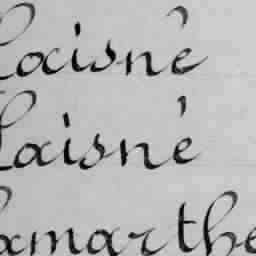 Laisné
Laisné
Lamarthe